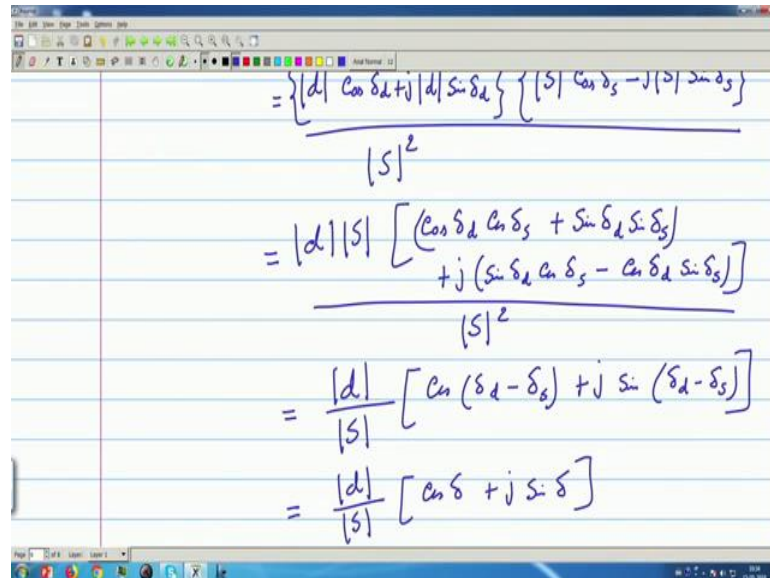 File Edit View Page Tools Options Help
= {|d| Cos δ_d + j |d| Sin δ_d} {|S| Cos δ_s − j |S| Sin δ_s}
|S|²
= |d| |S| [(Cos δ_d Cos δ_s + Sin δ_d Sin δ_s)
+ j (Sin δ_d Cos δ_s − Cos δ_d Sin δ_s)]
|S|²
= |d| / |S| [Cos (δ_d − δ_s) + j Sin (δ_d − δ_s)]
= |d| / |S| [Cos δ + j Sin δ]
Layer 1